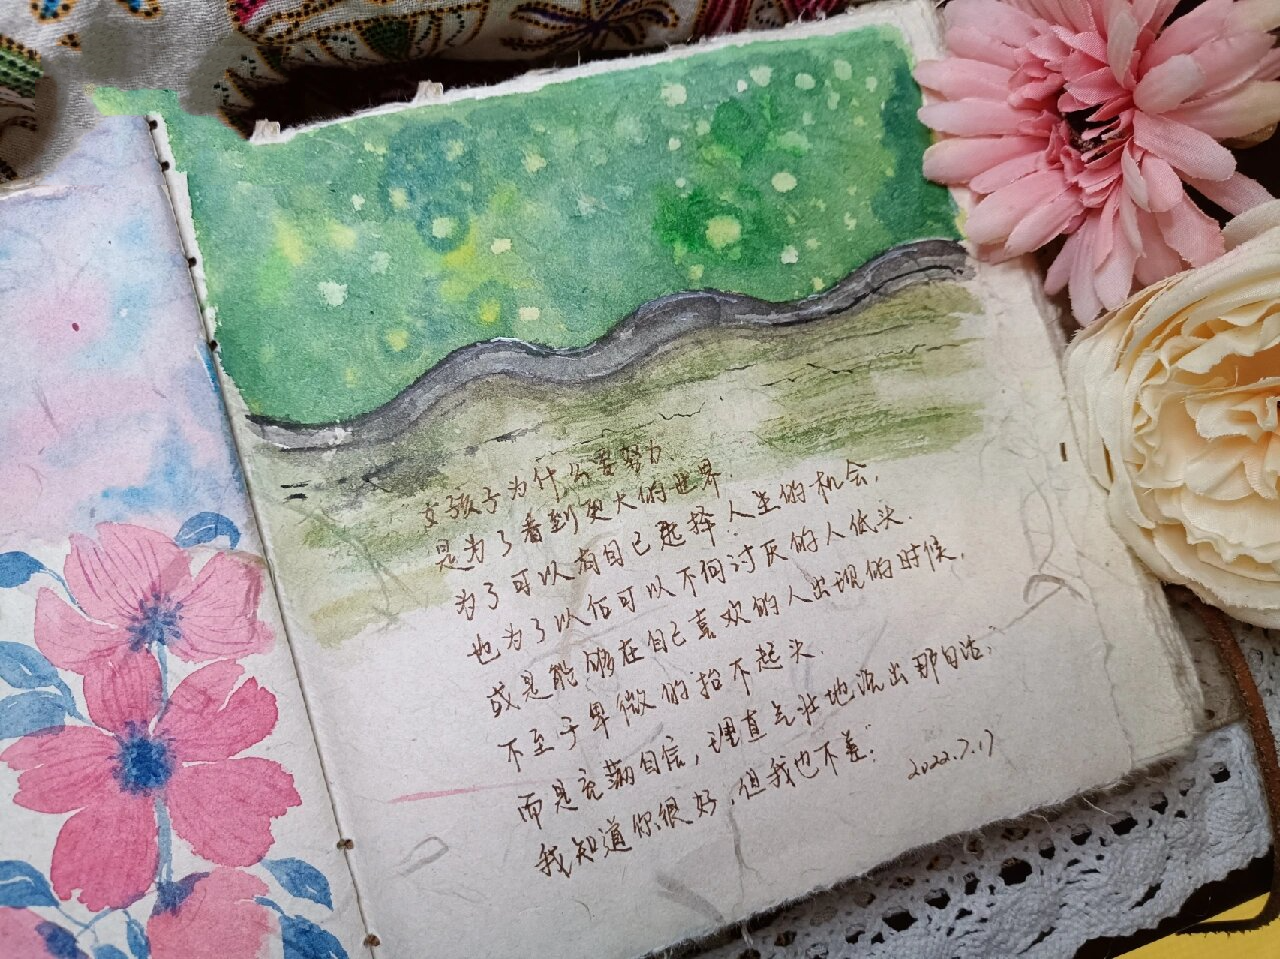 女孩子为什么要努力、
是为了看到更大的世界.
为了可以有自己选择人生的机会,
也为了以后可以不向讨厌的人低头.
或是能够在自己喜欢的人出现的时候,
不至于卑微的抬不起头.
而是充满自信，理直气壮地说出那句话:
我知道你很好，但我也不差.
2022.7.17